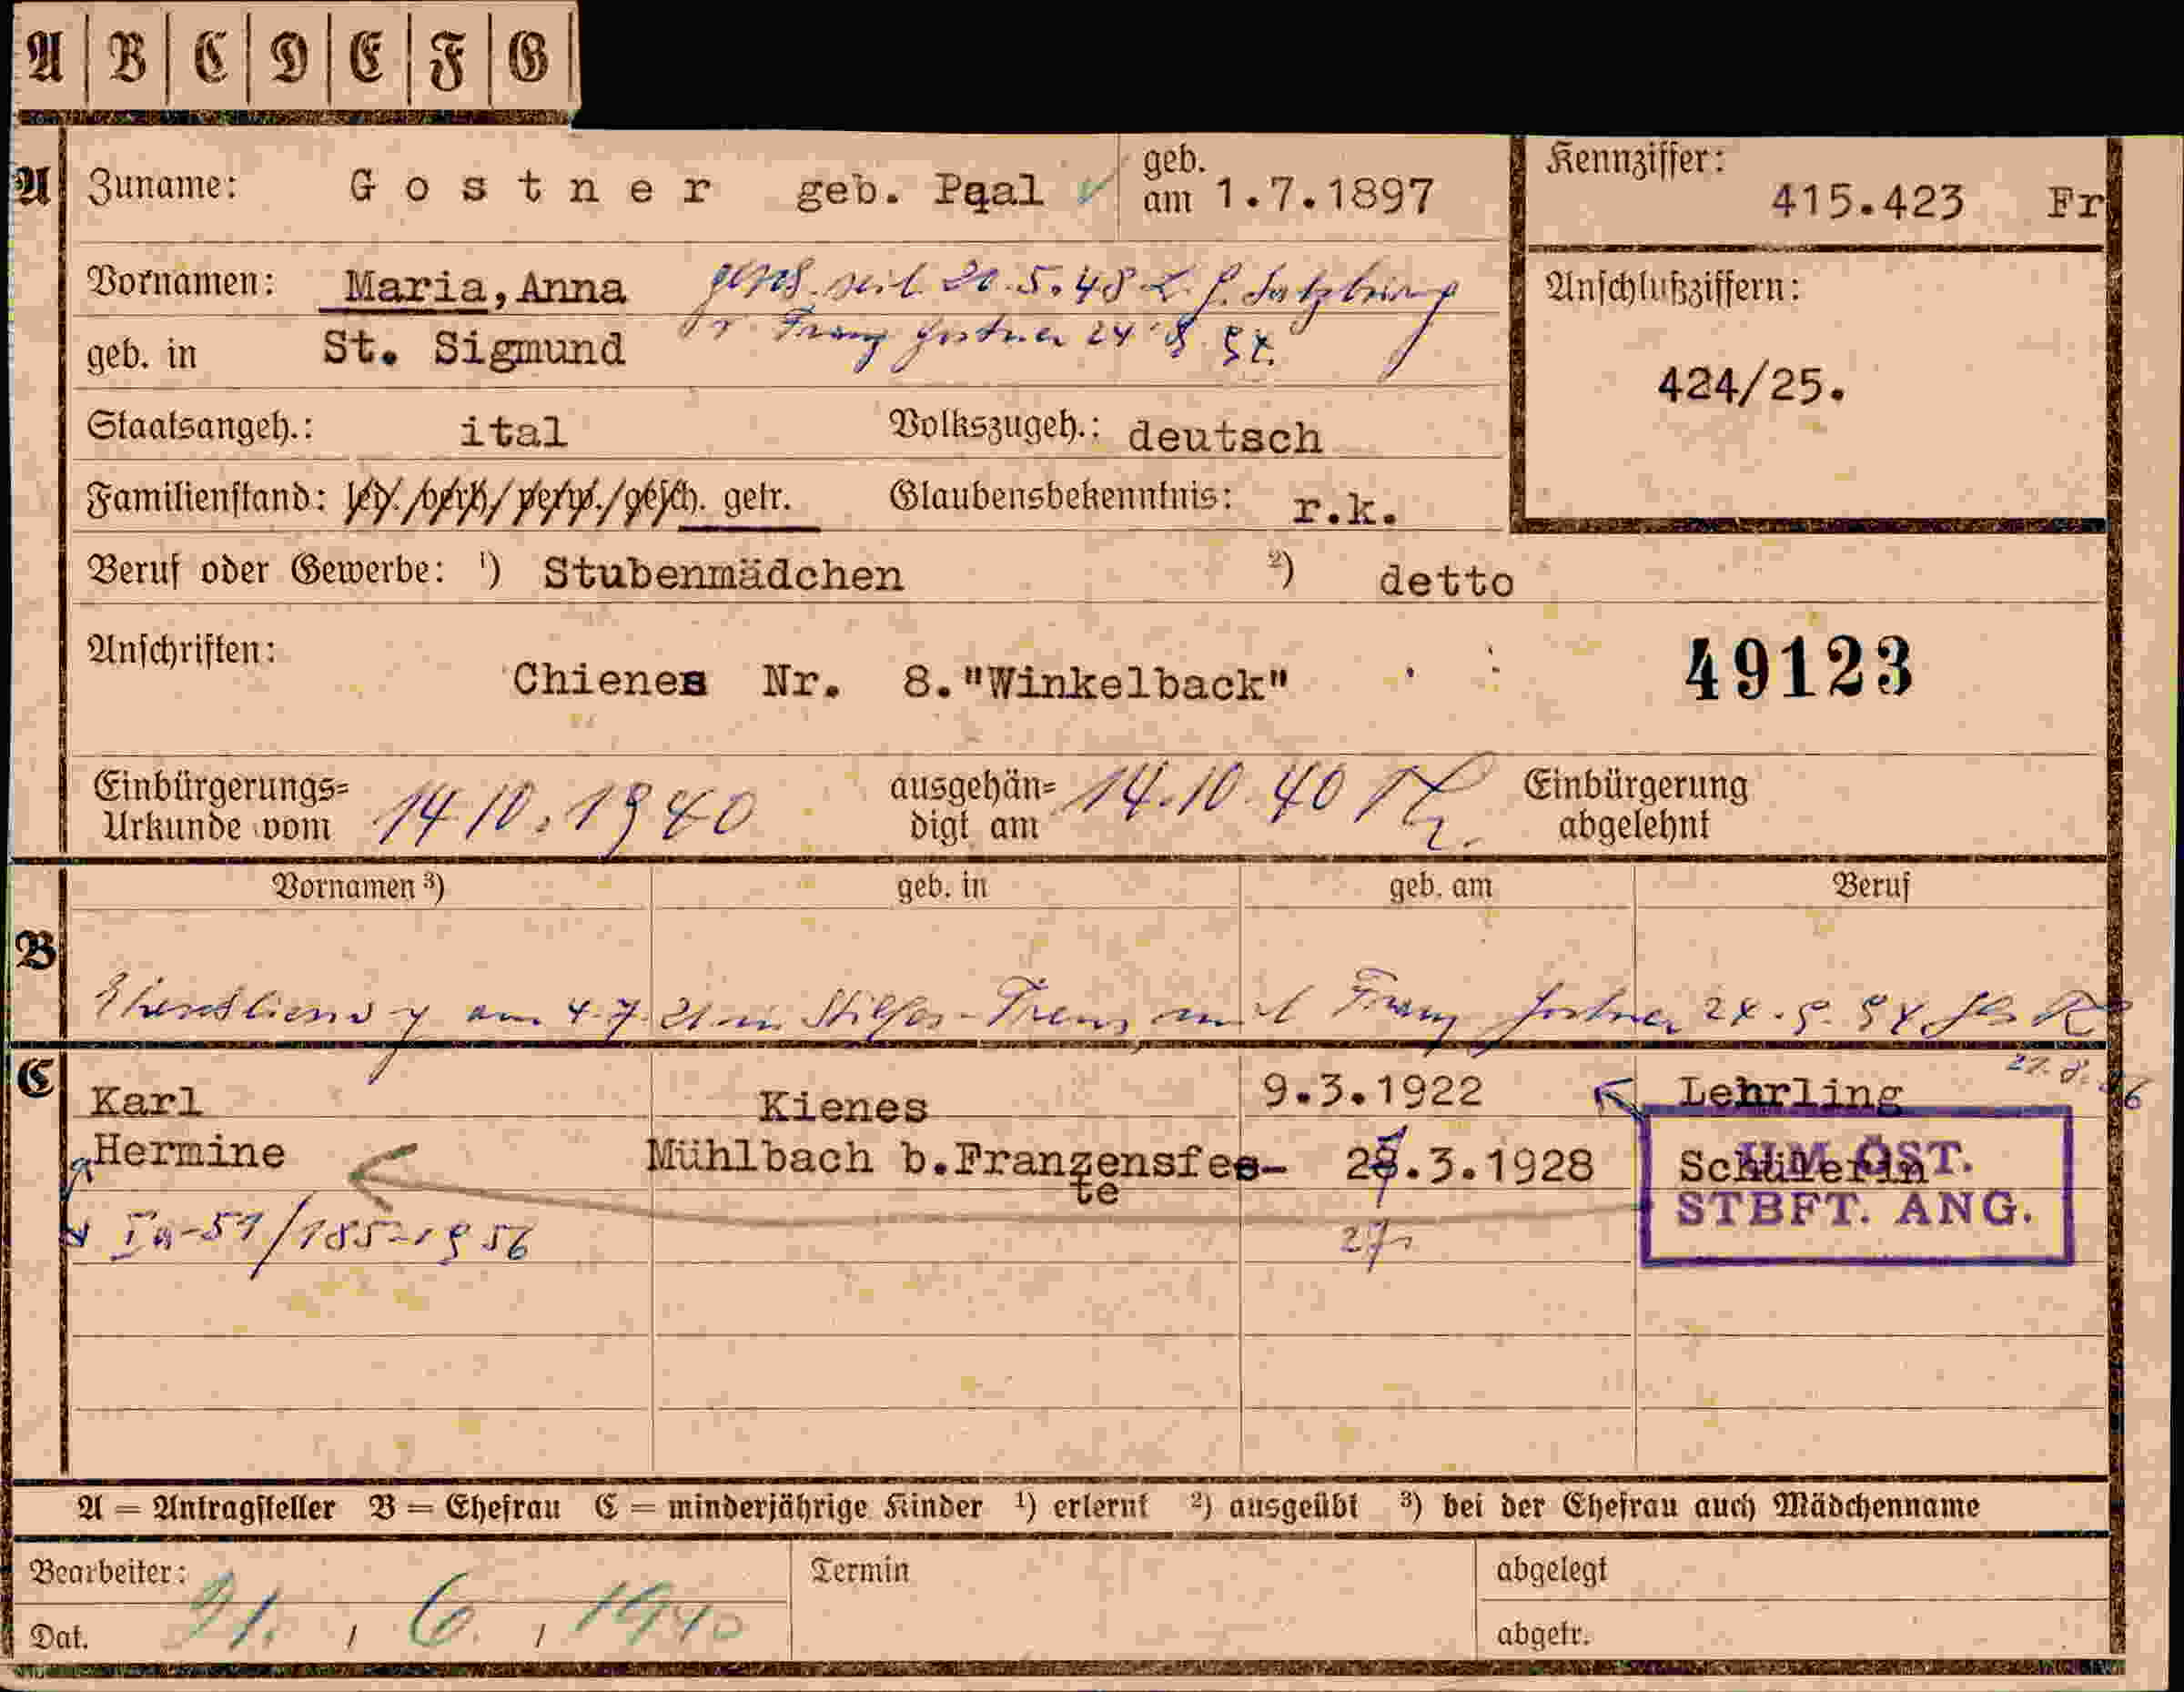 A B C D E F G
A Zuname: Gostner geb. Paal geb. am 1.7.1897 Kennziffer: 415.423 Fr
Vornamen: Maria, Anna seit 20.5.48 Anschlußziffern:
geb. in St. Sigmund Franz Gostner 24
424/25.
Staatsangeh.: ital Volkszugeh.: deutsch
Familienstand: led./verh/verw./gesch. getr. Glaubensbekenntnis: r.k.
Beruf oder Gewerbe: ¹) Stubenmädchen ²) detto
Anschriften: Chienes Nr. 8."Winkelback" 49123
Einbürgerungs= Urkunde vom 14 10.1940 ausgehän= digt am 14.10.40 Einbürgerung abgelehnt
Vornamen ³) geb. in geb. am Beruf
B
am 4.7.21 in Stilfes-Trens mit Franz Gostner
C
Karl Kienes 9.3.1922 Lehrling
Hermine Mühlbach b.Franzensfes- te 28.3.1928 Schülerin
27
UM ÖST.
STBFT. ANG.
A = Antragsteller B = Ehefrau C = minderjährige Kinder ¹) erlernt ²) ausgeübt ³) bei der Ehefrau auch Mädchenname
Bearbeiter: Termin abgelegt
Dat. 21. / 6. / 1940 abgetr.